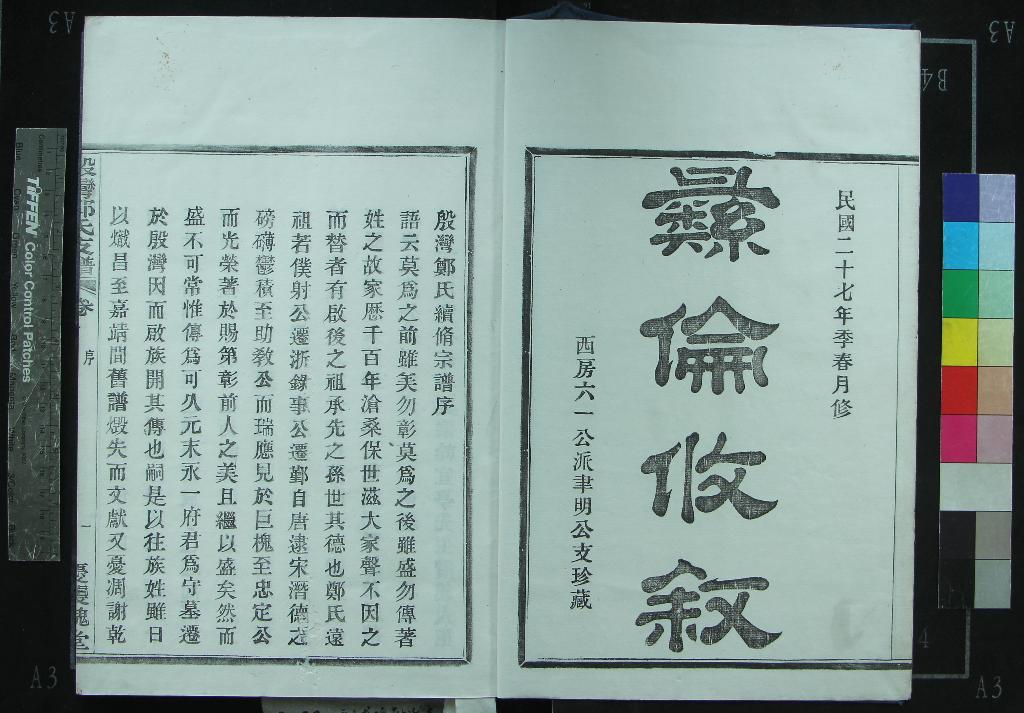 民國二十七年季春月修
彝倫攸敘
西房六一公派聿明公支珍藏
殷灣鄭氏續脩宗譜序
語云莫為之前雖美勿彰莫為之後雖盛勿傳著
姓之故家歷千百年滄桑保世滋大家聲不因之
而替者有啟後之祖承先之孫世其德也鄭氏遠
祖若僕射公遷浙錄事公遷鄞自唐逮宋潛德之
磅礴鬱積至助教公而瑞應見於巨槐至忠定公
而光榮著於賜第彰前人之美且繼以盛矣然而
盛不可常惟傳為可久元末永一府君為守墓遷
於殷灣因而啟族開其傳也嗣是以往族姓雖日
以熾昌至嘉靖間舊譜燬失而文獻又憂凋謝乾
殷灣鄭氏支譜
卷
序
一
槐堂
TIFFEN Color Control Patches
A3
A3
B4
A3
4
A3